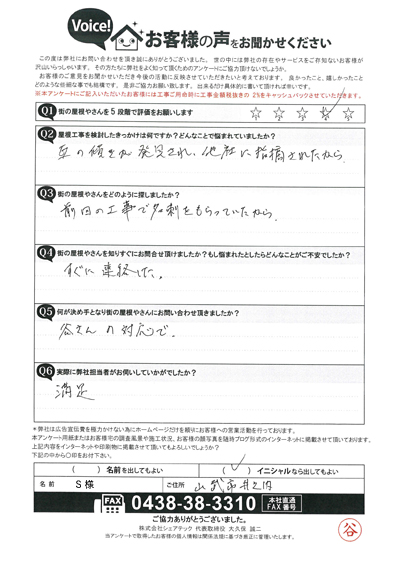 Voice!
お客様の声をお聞かせください
この度は弊社にお問い合わせを頂き誠にありがとうございました。世の中には弊社の存在やサービスをご存知ないお客様が
沢山いらっしゃいます。その方たちに弊社をよく知って頂くためのアンケートにご協力頂けないでしょうか。
お客様のご意見をお聞かせいただき今後の活動に反映させていただきたいと考えております。良かったこと、嬉しかったこと
どのような些細な事でも結構です。是非ご協力お願い致します。出来るだけ具体的に書いて頂ければ幸いです。
※本アンケートにご記入いただいたお客様には工事ご用命時に工事金額税抜きの2%をキャッシュバックさせていただきます。
Q1 街の屋根やさんを5段階で評価をお願いします
☆ ☆ ☆ ☆ ☆
Q2 屋根工事を検討したきっかけは何ですか?どんなことで悩まれていましたか?
瓦の傾きが発見され、他社に指摘されたから
Q3 街の屋根やさんをどのように探しましたか?
前回の工事で名刺をもらっていたから
Q4 街の屋根やさんを知りすぐにお問合せ頂けましたか?もし悩まれたとしたらどんなことがご不安でしたか?
すぐに連絡した。
Q5 何が決め手となり街の屋根やさんにお問い合わせ頂きましたか?
谷さんの対応で。
Q6 実際に弊社担当者がお伺いしていかがでしたか?
満足
*弊社は広告宣伝費を極力かけない為にホームページだけを頼りにお客様への営業活動を行っております。
本アンケート用紙またはお客様宅の調査風景や施工状況、お客様の顔写真を随時ブログ形式のインターネットに掲載させて頂いております。
上記内容をインターネットや印刷物に掲載させて頂いてもよろしいでしょうか?
下記の中から○印をお付け下さい。
( )名前を出してもよい ( ✓ )イニシャルなら出してもよい
名前 S様 ご住所 山武市井之内
FAX 0438-38-3310 本社直通FAX番号
ご協力ありがとうございました。
株式会社シェアテック 代表取締役 大久保 誠二
当アンケートで取得したお客様の個人情報は関係法規に基づき厳正に管理いたします。
谷